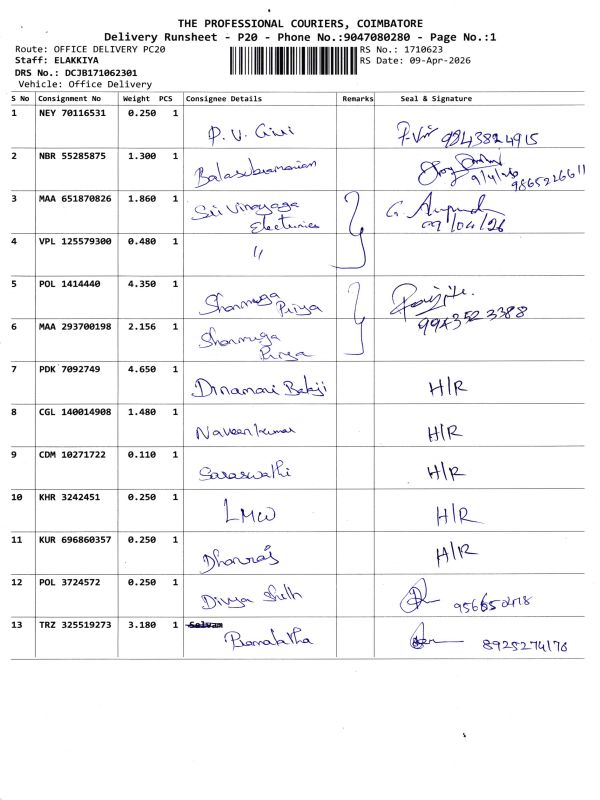 THE PROFESSIONAL COURIERS, COIMBATORE
Delivery Runsheet - P20 - Phone No.:9047080280 - Page No.:1
Route: OFFICE DELIVERY PC20
RS No.: 1710623
Staff: ELAKKIYA
RS Date: 09-Apr-2026
DRS No.: DCJB171062301
Vehicle: Office Delivery
S No Consignment No Weight PCS Consignee Details Remarks Seal & Signature
1 NEY 70116531 0.250 1 P. V. Giri 9243824915
2 NBR 55285875 1.300 1 Balasubramanian 9/4/26
9865226611
3 MAA 651870826 1.860 1 Sri Vinayaga
Electronics G. 09/04/26
4 VPL 125579300 0.480 1 "
5 POL 1414440 4.350 1 Shanmuga
Priya 9943523388
6 MAA 293700198 2.156 1 Shanmuga
Priya
7 PDK 7092749 4.650 1 Dinamani Balaji H/R
8 CGL 140014908 1.480 1 Naveenkumar H/R
9 CDM 10271722 0.110 1 Saraswathi H/R
10 KHR 3242451 0.250 1 LMW H/R
11 KUR 696860357 0.250 1 Dhanraj H/R
12 POL 3724572 0.250 1 Divya Sheth
13 TRZ 325519273 3.180 1 Selvam
Premalatha 8925274176